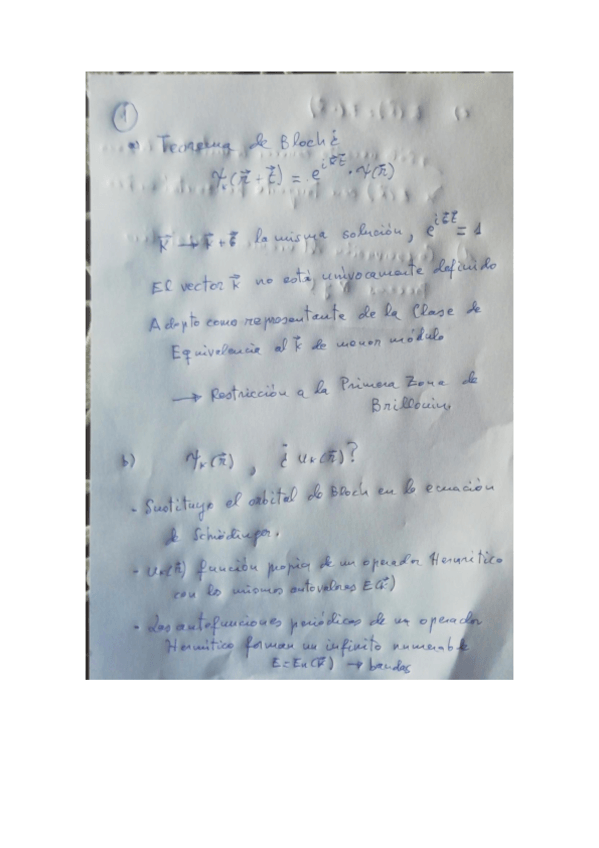 1
a) Teorema de Bloch:
ψₖ(r⃗ + t⃗) = e^{i k⃗ t⃗} · ψ(r⃗)
k⃗ → k⃗ + G⃗ la misma solución, e^{i G⃗ t⃗} = 1
El vector k⃗ no está unívocamente definido
Adopto como representante de la Clase de
Equivalencia al k⃗ de menor módulo
→ Restricción a la Primera Zona de
Brillouin.
b) ψₖ(r⃗), ¿ uₖ(r⃗)?
- Sustituyo el orbital de Bloch en la ecuación
de Schrödinger.
- uₖ(r⃗) función propia de un operador Hermítico
con los mismos autovalores E(k⃗)
- Las autofunciones periódicas de un operador
Hermítico forman un infinito numerable
E = Eₙ(k⃗) → bandas